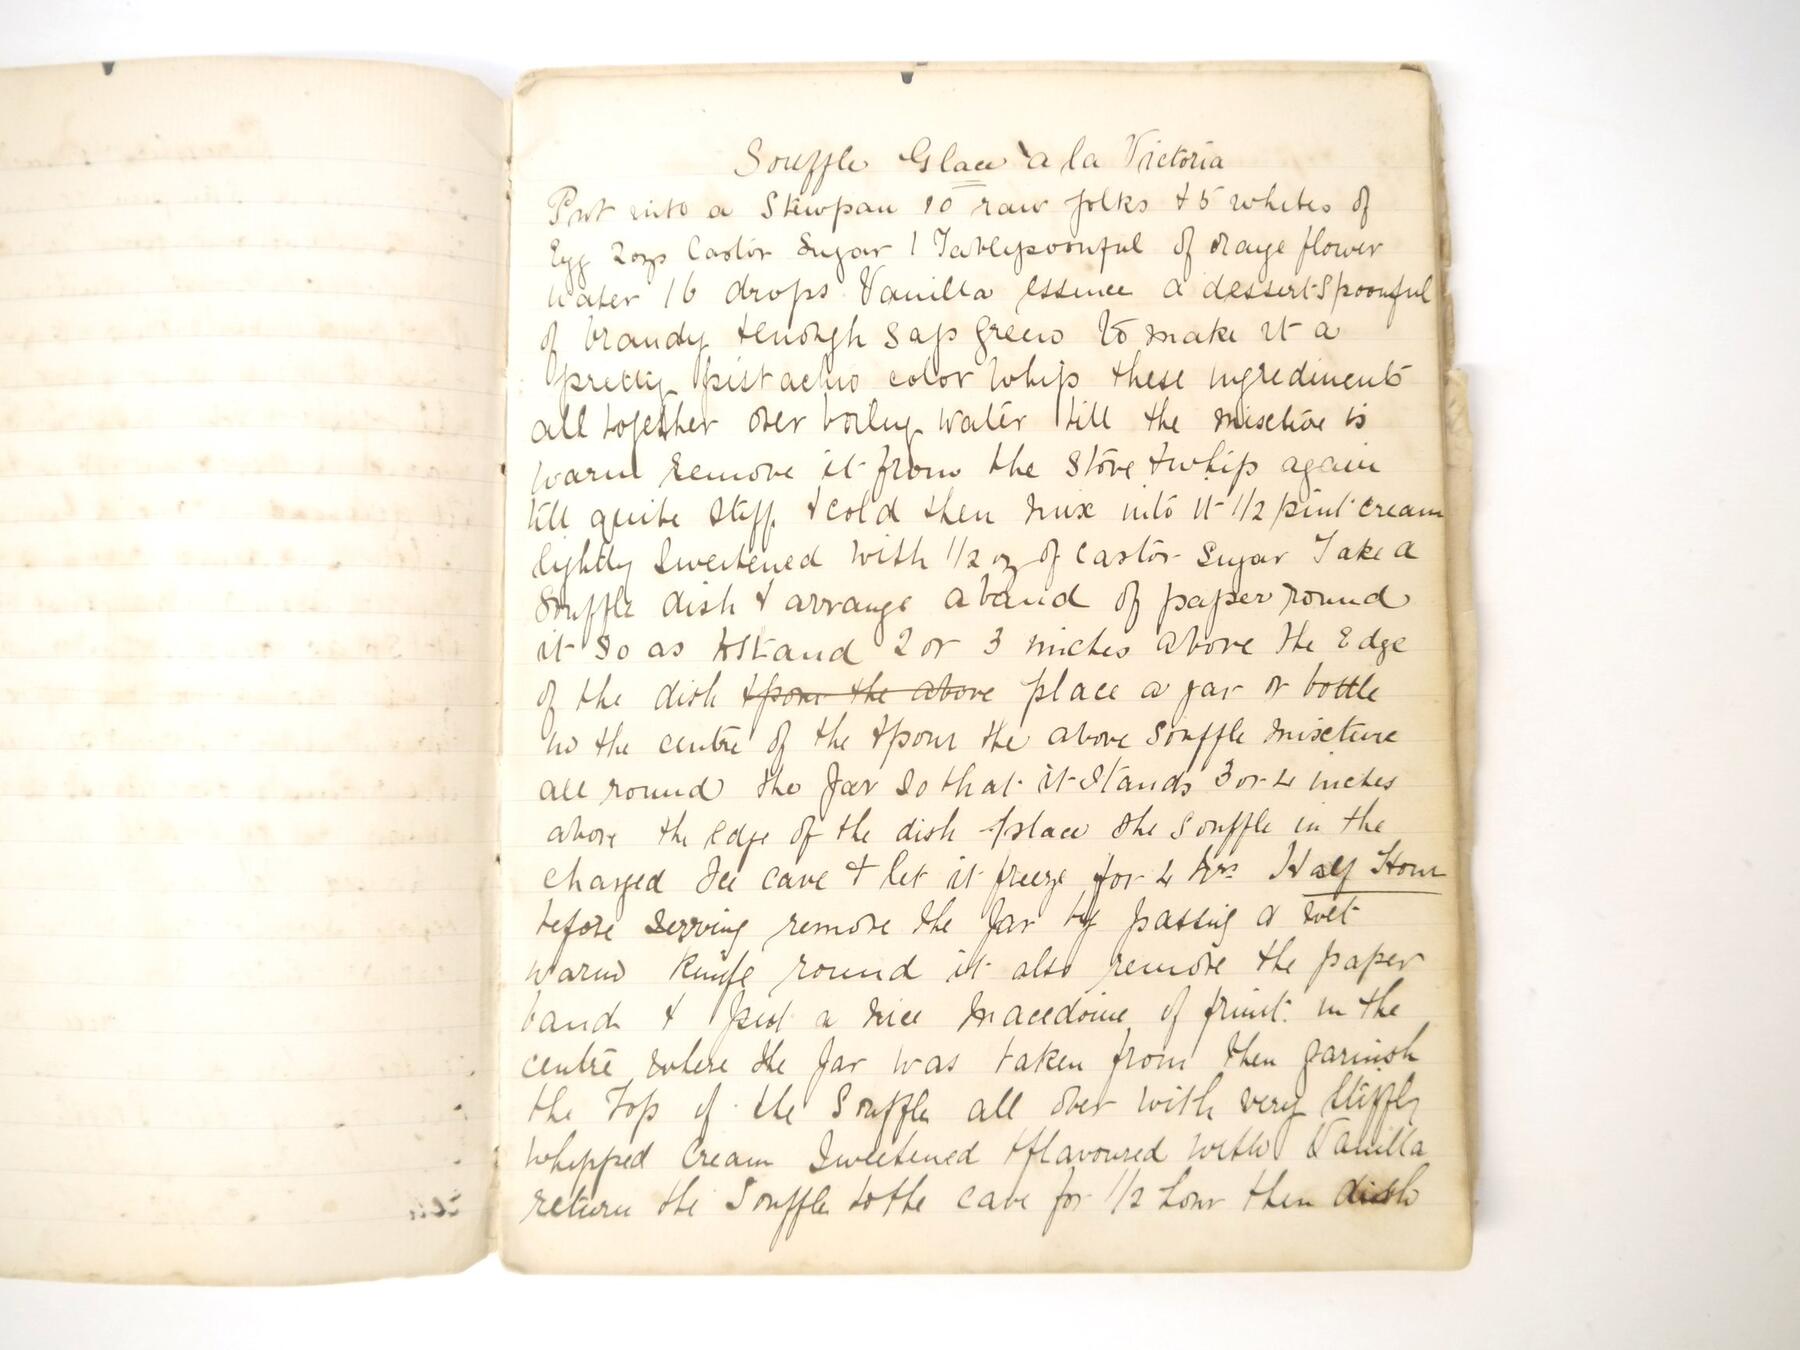 Souffle Glace a la Victoria
Put into a Stewpan 10 raw yolks & 5 whites of
Egg 2ozs Castor Sugar 1 Tablespoonful of orange flower
water 16 drops Vanilla essence a dessert-spoonful
of brandy & enough sap green to make it a
pretty pistachio color whip these ingredients
all together over boiling water till the mixture is
warm remove it from the stove & whip again
till quite stiff & cold then mix into it 1/2 pint cream
lightly sweetened with 1/2 oz of castor sugar Take a
Souffle dish & arrange a band of paper round
it so as to stand 2 or 3 inches above the Edge
of the dish & pour the above place a jar or bottle
in the centre of the & pour the above Souffle mixture
all round the Jar so that it stands 3 or 4 inches
above the edge of the dish place the Souffle in the
charged Ice cave & let it freeze for 4 hrs Half Hour
before serving remove the Jar by passing a wet
warm knife round it also remove the paper
band & put a nice Macedoine of fruit in the
centre where the Jar was taken from then garnish
the Top of the Souffle all over with very stiffly
whipped Cream Sweetened & flavoured with Vanilla
return the Souffle to the cave for 1/2 hour then dish